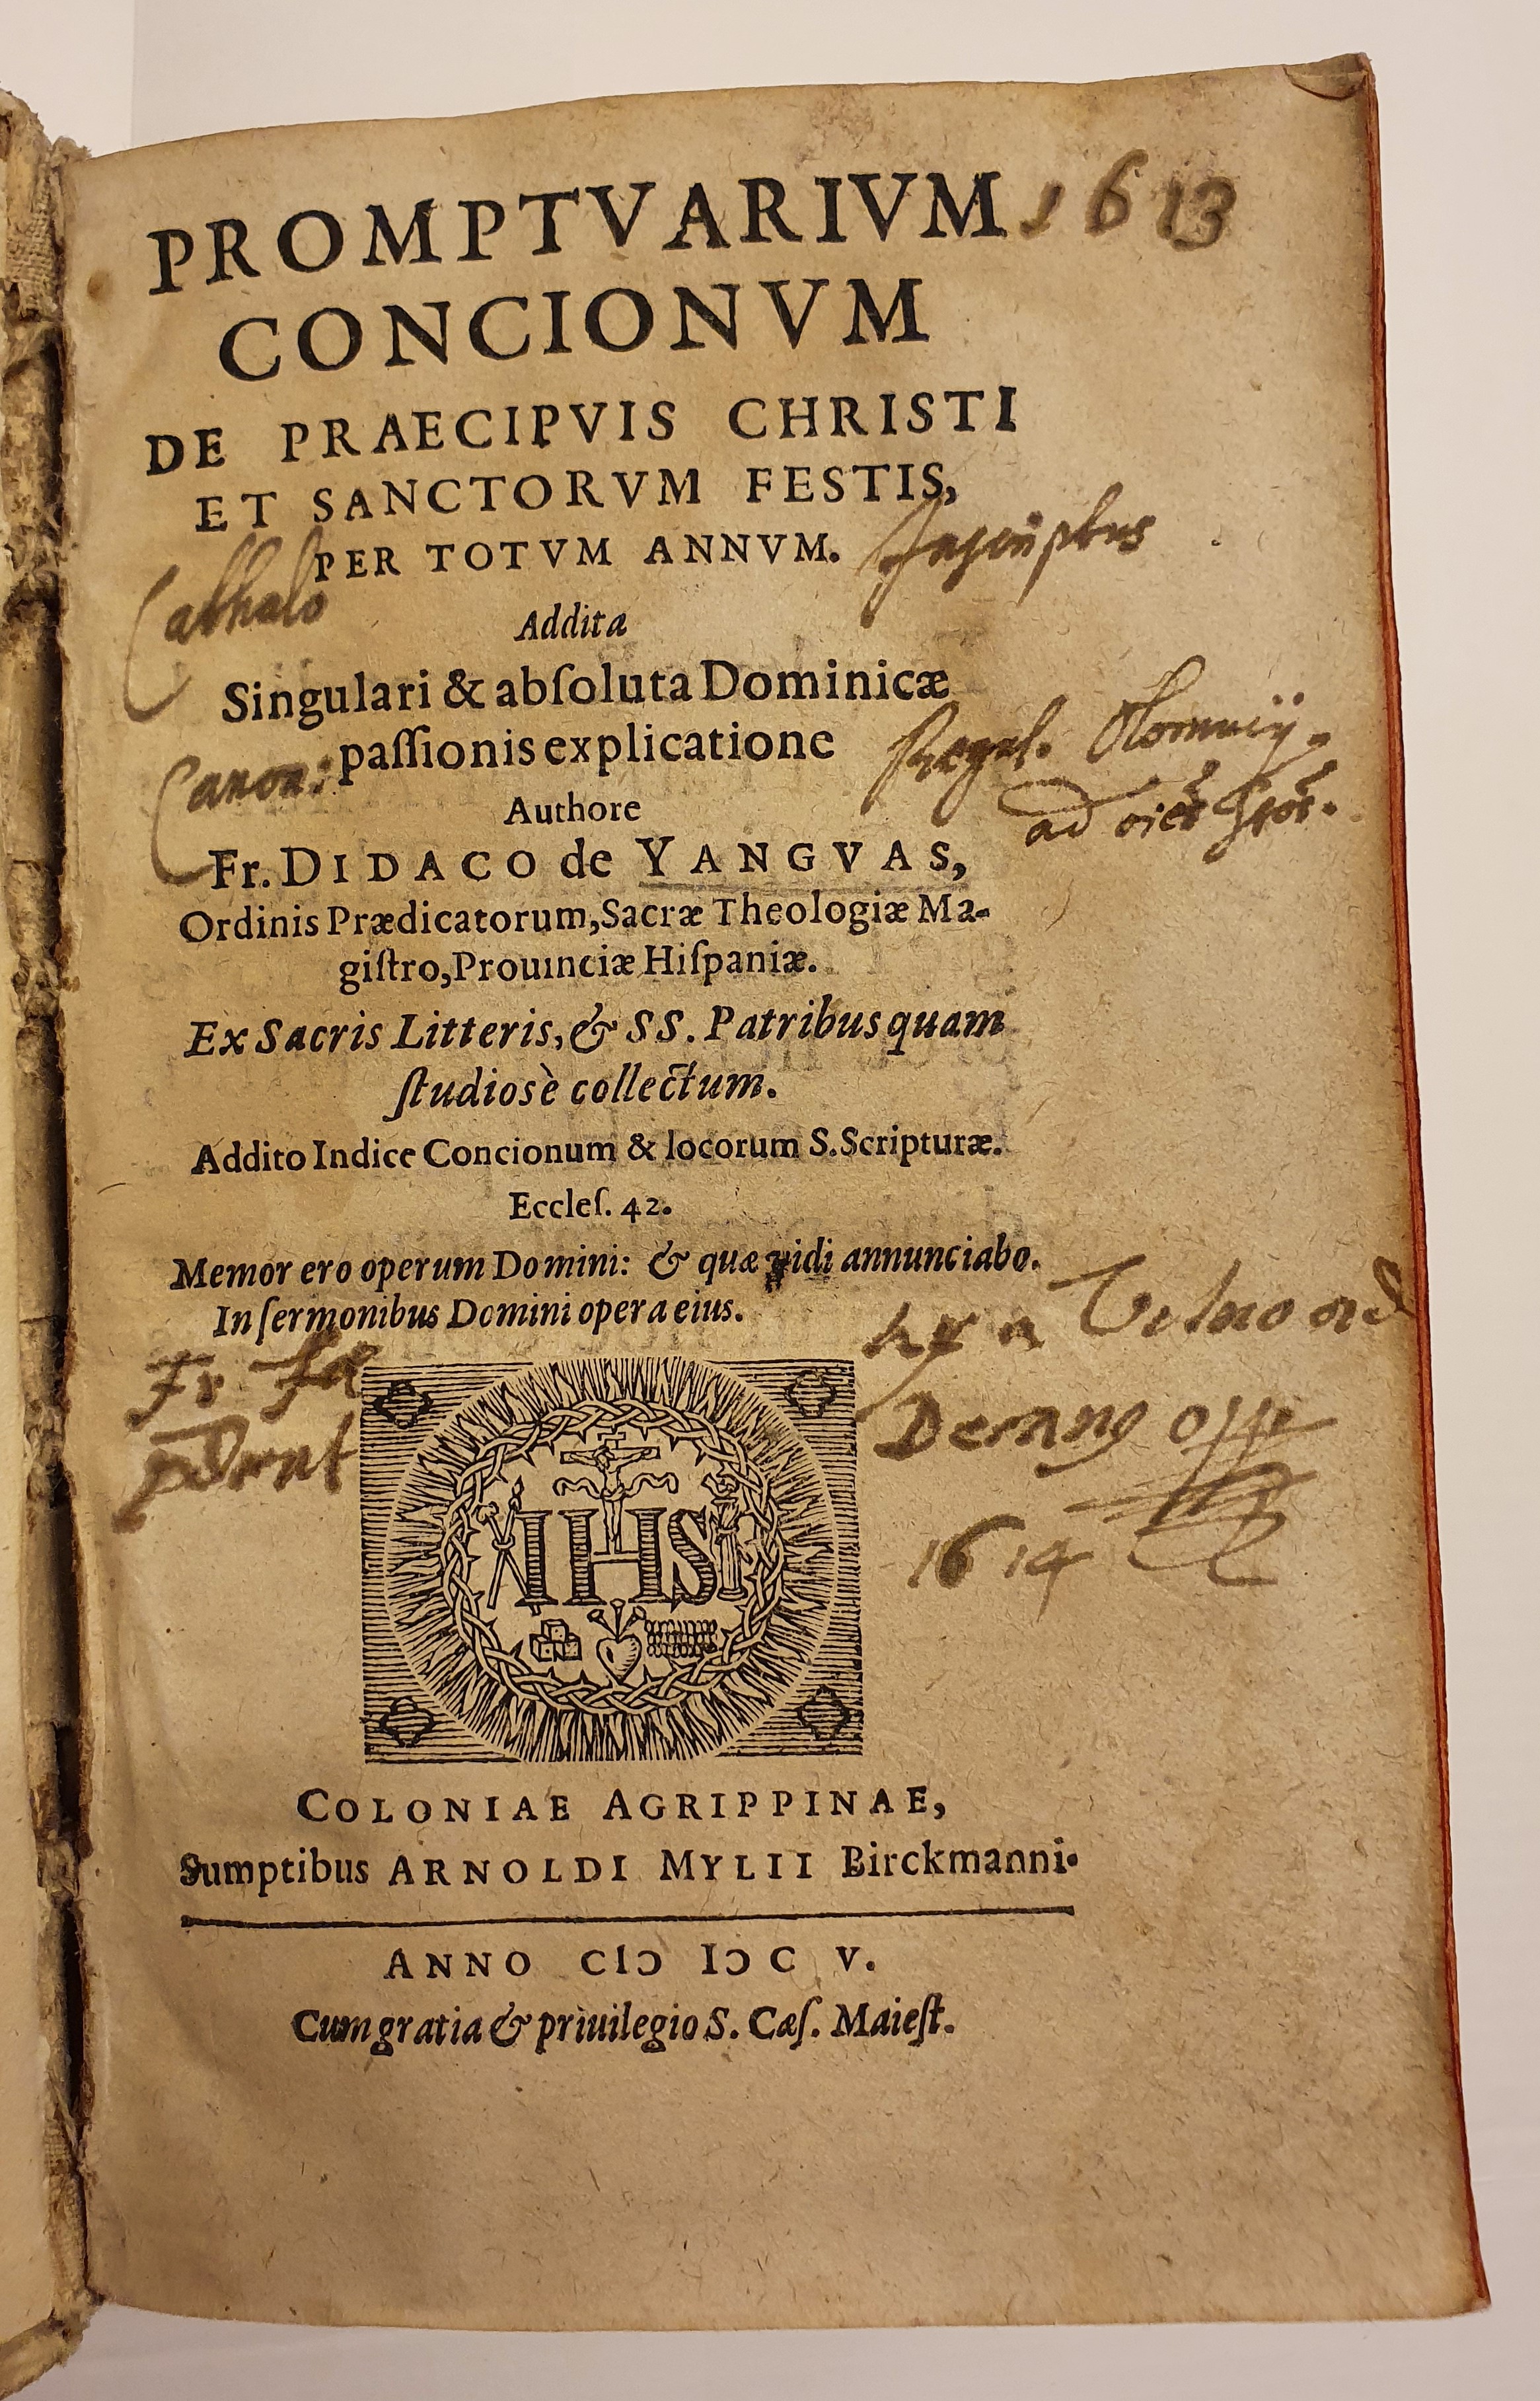 PROMPTVARIVM 1613
CONCIONVM
DE PRAECIPVIS CHRISTI
ET SANCTORVM FESTIS,
PER TOTVM ANNVM.
Inscriptus
Cathalo
Addita
Singulari & abſoluta Dominicæ
paſſionis explicatione
Canon:
Regul. Olomucij.
ad
Authore
Fr. DIDACO de YANGVAS,
Ordinis Prædicatorum, Sacræ Theologiæ Ma-
giſtro, Prouinciæ Hiſpaniæ.
Ex Sacris Litteris, & SS. Patribus quam
ſtudiosè collectum.
Addito Indice Concionum & locorum S. Scripturæ.
Eccleſ. 42.
Memor ero operum Domini: & quæ vidi annunciabo.
In ſermonibus Domini opera eius.
Fr
IHS
1614
COLONIAE AGRIPPINAE,
Sumptibus ARNOLDI MYLII Birckmanni.
ANNO CIↃ IↃC V.
Cum gratia & priuilegio S. Cæſ. Maieſt.